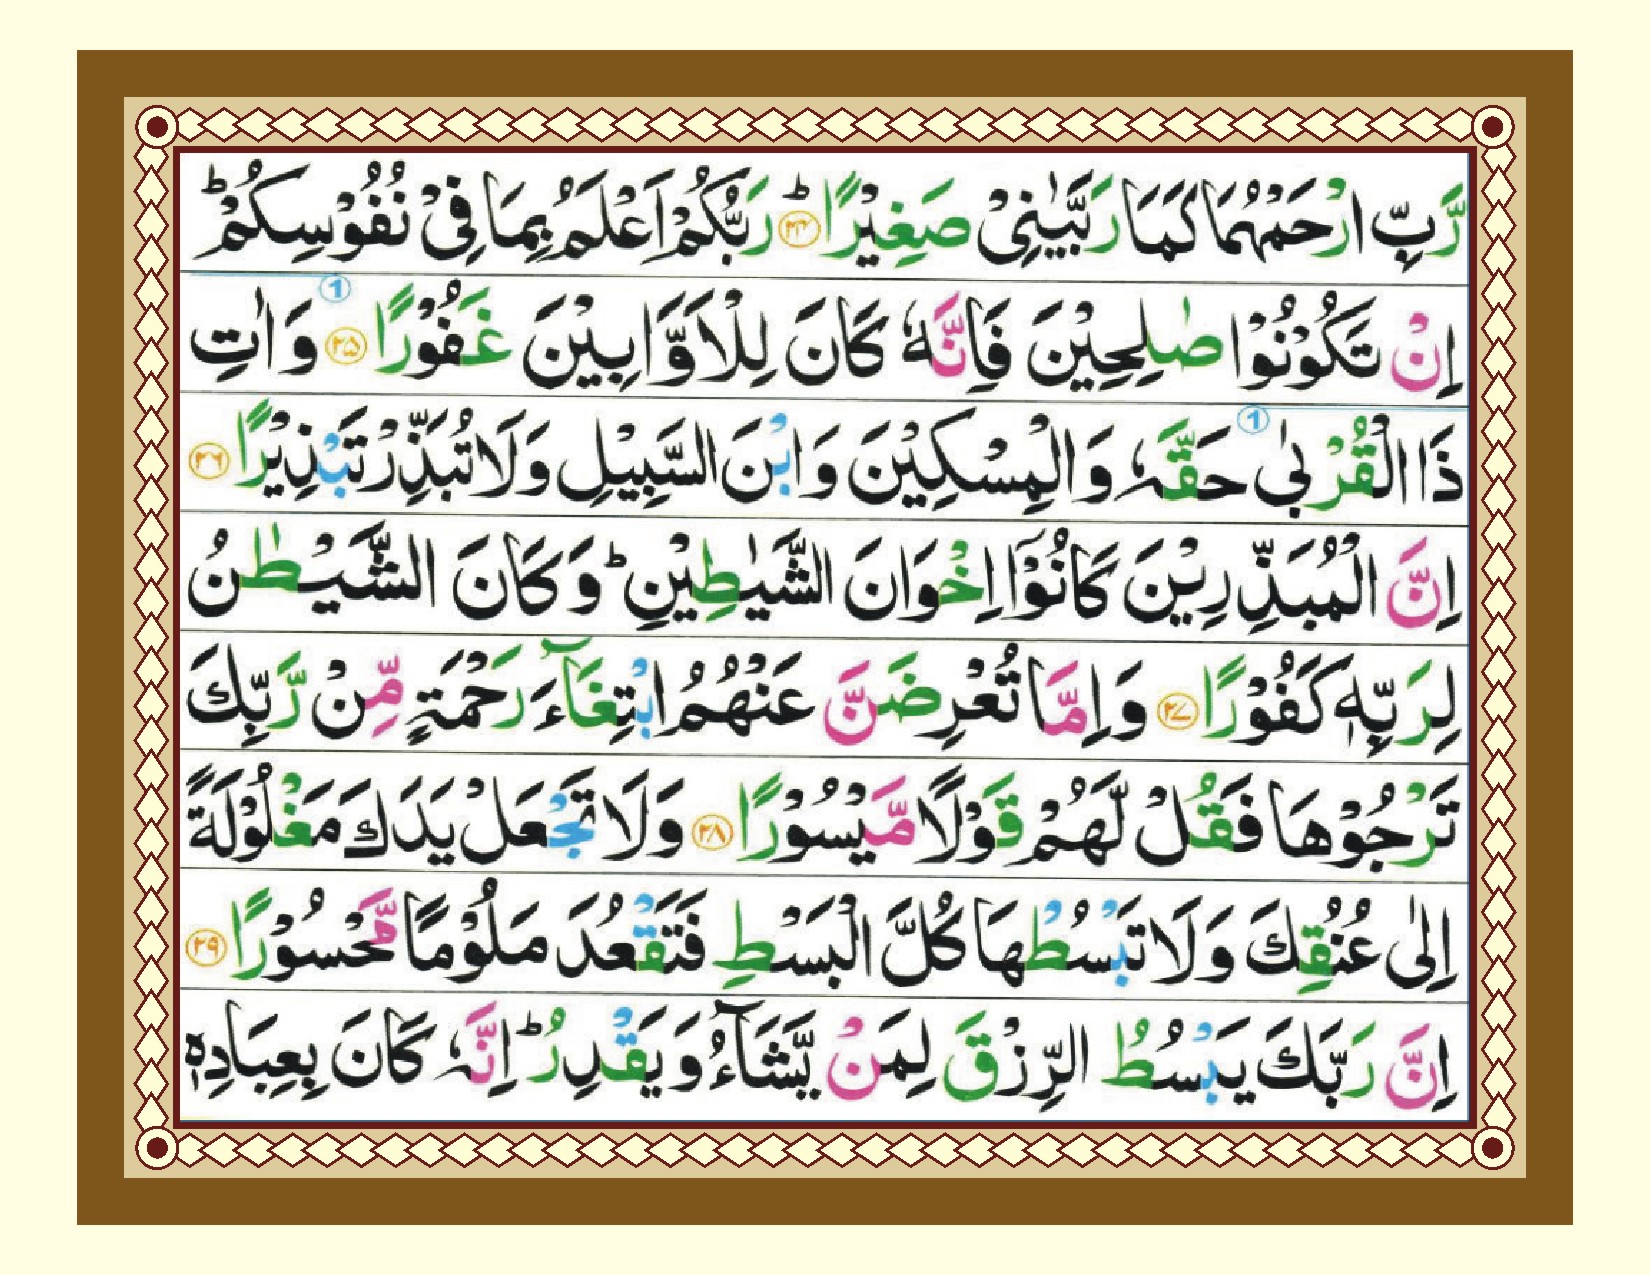 رَّبِّ ارْحَمْهُمَا كَمَا رَبَّيٰنِيْ صَغِيْرًا ؕ ﴿۲۴﴾ رَبُّكُمْ اَعْلَمُ بِمَا فِيْ نُفُوْسِكُمْ ؕ
اِنْ تَكُوْنُوْا صٰلِحِيْنَ فَاِنَّهٗ كَانَ لِلْاَوَّابِيْنَ غَفُوْرًا ﴿۲۵﴾ 1 وَ اٰتِ
ذَا الْقُرْبٰى حَقَّهٗ 1 وَ الْمِسْكِيْنَ وَ ابْنَ السَّبِيْلِ وَلَا تُبَذِّرْ تَبْذِيْرًا ﴿۲۶﴾
اِنَّ الْمُبَذِّرِيْنَ كَانُوْۤا اِخْوَانَ الشَّيٰطِيْنِ ؕ وَ كَانَ الشَّيْطٰنُ
لِرَبِّهٖ كَفُوْرًا ﴿۲۷﴾ وَ اِمَّا تُعْرِضَنَّ عَنْهُمُ ابْتِغَآءَ رَحْمَةٍ مِّنْ رَّبِّكَ
تَرْجُوْهَا فَقُلْ لَّهُمْ قَوْلًا مَّيْسُوْرًا ﴿۲۸﴾ وَ لَا تَجْعَلْ يَدَكَ مَغْلُوْلَةً
اِلٰى عُنُقِكَ وَ لَا تَبْسُطْهَا كُلَّ الْبَسْطِ فَتَقْعُدَ مَلُوْمًا مَّحْسُوْرًا ﴿۲۹﴾
اِنَّ رَبَّكَ يَبْسُطُ الرِّزْقَ لِمَنْ يَّشَآءُ وَ يَقْدِرُ ؕ اِنَّهٗ كَانَ بِعِبَادِهٖ